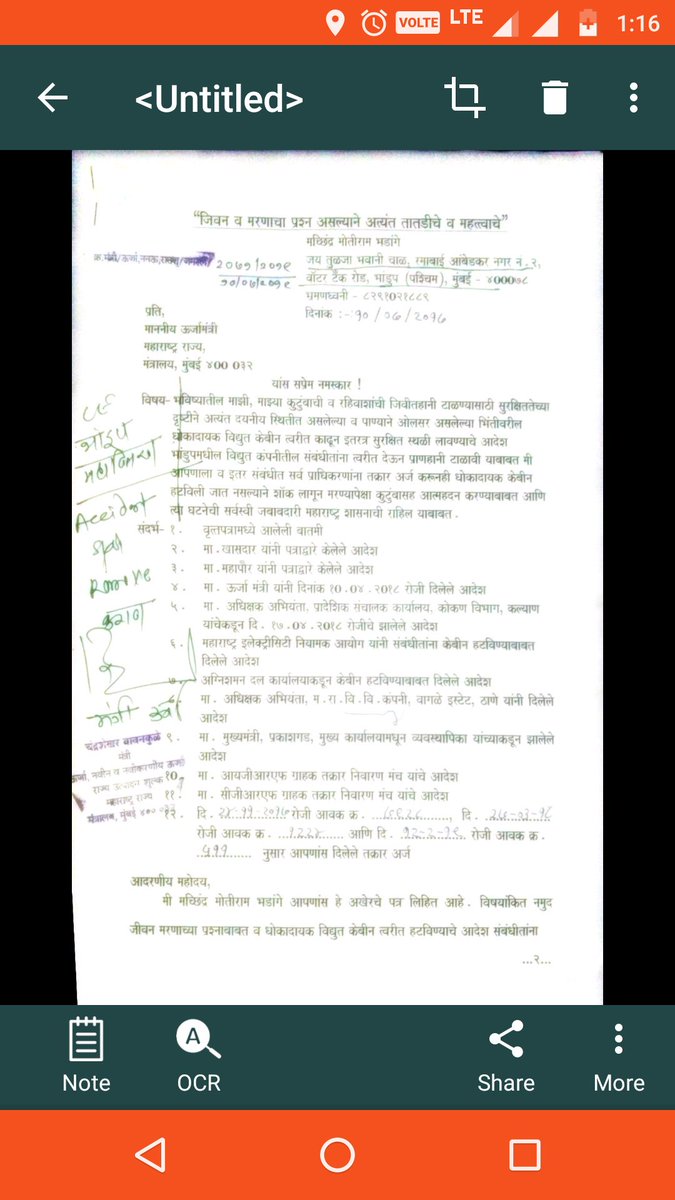 VOLTE LTE 1:16
<Untitled>
“जिवन व मरणाचा प्रश्न असल्याने अत्यंत तातडीचे व महत्त्वाचे”
मच्छिंद्र मोतीराम भडांगे
जय तुळजा भवानी चाळ, रमाबाई आंबेडकर नगर नं.२,
वॉटर टँक रोड, भांडुप (पश्चिम), मुंबई - ४०००७८
भ्रमणध्वनी - ८२९१०२१८८९
दिनांक :-
प्रति,
माननीय ऊर्जामंत्री
महाराष्ट्र राज्य,
मंत्रालय, मुंबई ४०० ०३२
यांस सप्रेम नमस्कार !
विषय- भविष्यातील माझी, माझ्या कुटुंबाची व रहिवाशांची जिवीतहानी टाळण्यासाठी सुरक्षिततेच्या
दृष्टीने अत्यंत दयनीय स्थितीत असलेल्या व पाण्याने ओलसर असलेल्या भिंतीवरील
धोकादायक विद्युत केबीन त्वरीत काढून इतरत्र सुरक्षित स्थळी लावण्याचे आदेश
भांडुपमधील विद्युत कंपनीतील संबंधीतांना त्वरीत देऊन प्राणहानी टाळावी याबाबत मी
आपणाला व इतर संबंधीत सर्व प्राधिकरणांना तक्रार अर्ज करूनही धोकादायक केबीन
हटविली जात नसल्याने शॉक लागून मरण्यापेक्षा कुटुंबासह आत्मदहन करण्याबाबत आणि
त्या घटनेची सर्वस्वी जबाबदारी महाराष्ट्र शासनाची राहिल याबाबत.
Accident
संदर्भ- १. वृत्तपत्रामध्ये आलेली बातमी
२. मा.खासदार यांनी पत्राद्वारे केलेले आदेश
३. मा.महापौर यांनी पत्राद्वारे केलेले आदेश
४. मा. ऊर्जा मंत्री यांनी दिनांक १०.०४.२०१८ रोजी दिलेले आदेश
५. मा. अधिक्षक अभियंता, प्रादेशिक संचालक कार्यालय, कोकण विभाग, कल्याण
यांचेकडून दि. १७.०४.२०१८ रोजीचे झालेले आदेश
६. महाराष्ट्र इलेक्ट्रीसिटी नियामक आयोग यांनी संबंधीतांना केबीन हटविण्याबाबत
दिलेले आदेश
७. अग्निशमन दल कार्यालयाकडून केबीन हटविण्याबाबत दिलेले आदेश
मा. अधिक्षक अभियंता, म.रा.वि.वि.कंपनी, वागळे इस्टेट, ठाणे यांनी दिलेले
आदेश
चंद्रशेखर बावनकुळे
मंत्री
ऊर्जा, नवीन व नवीकरणीय ऊर्जा
राज्य उत्पादन शुल्क
महाराष्ट्र राज्य
मंत्रालय, मुंबई ४०० ०३२
९. मा. मुख्यमंत्री, प्रकाशगड, मुख्य कार्यालयामधून व्यवस्थापिका यांच्याकडून झालेले
आदेश
१०. मा. आयजीआरएफ ग्राहक तक्रार निवारण मंच यांचे आदेश
११. मा. सीजीआरएफ ग्राहक तक्रार निवारण मंच यांचे आदेश
१२. दि. रोजी आवक क्र. दि.
रोजी आवक क्र. आणि दि. रोजी आवक क्र.
५११ नुसार आपणांस दिलेले तक्रार अर्ज
आदरणीय महोदय,
मी मच्छिंद्र मोतीराम भडांगे आपणांस हे अखेरचे पत्र लिहित आहे. विषयांकित नमुद
जीवन मरणाच्या प्रश्नाबाबत व धोकादायक विद्युत केबीन त्वरीत हटविण्याचे आदेश संबंधीतांना
...२...
Note OCR Share More